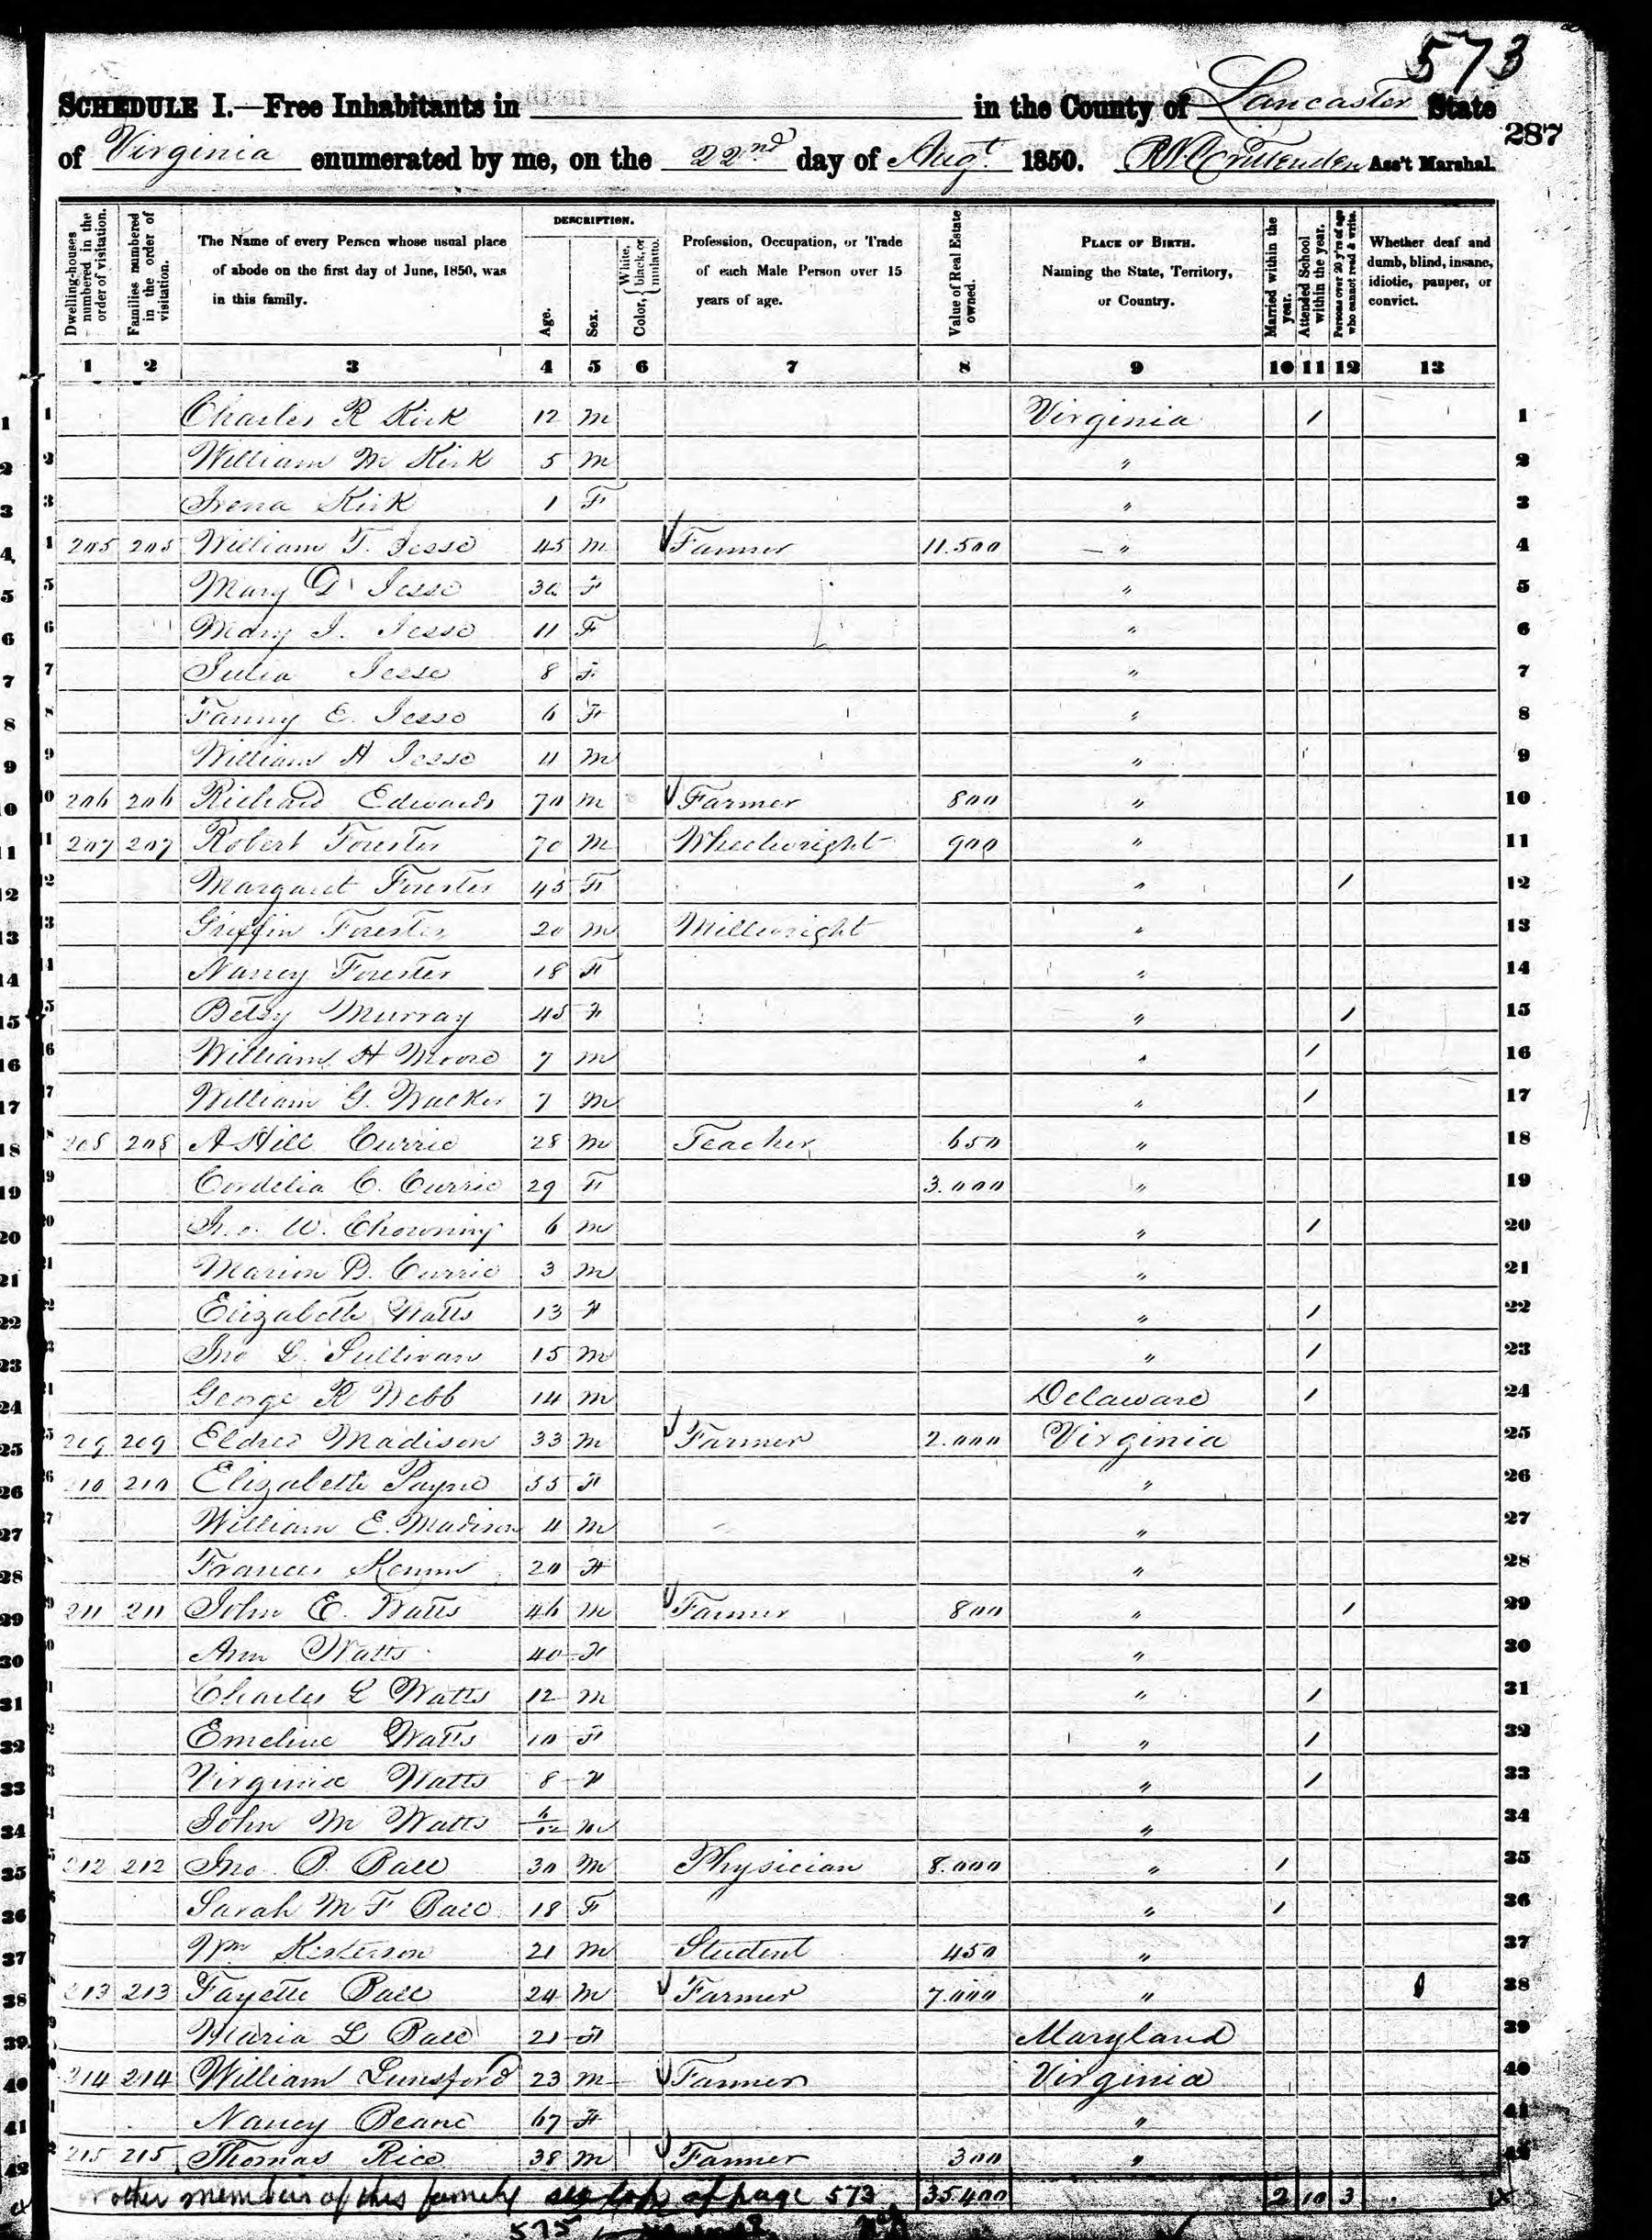 573
SCHEDULE I.—Free Inhabitants in in the County of Lancaster State
287
of Virginia enumerated by me, on the 22nd day of Augt. 1850. Crittenden Ass't Marshal.
Dwelling-houses numbered in the order of visitation. Families numbered in the order of visitation. The Name of every Person whose usual place of abode on the first day of June, 1850, was in this family. DESCRIPTION. Age. Sex. Color, White, black, or mulatto. Profession, Occupation, or Trade of each Male Person over 15 years of age. Value of Real Estate owned. PLACE OF BIRTH. Naming the State, Territory, or Country. Married within the year. Attended School within the year. Persons over 20 y'rs of age who cannot read & write. Whether deaf and dumb, blind, insane, idiotic, pauper, or convict.
1 2 3 4 5 6 7 8 9 10 11 12 13
1 Charles R Kirk 12 M Virginia / 1
2 William M Kirk 5 M " 2
3 Irena Kirk 1 F " 3
4 205 205 William T. Jesse 45 M Farmer 11.500 — " 4
5 Mary D Jesse F " 5
6 Mary J. Jesse 11 F " 6
7 Julia Jesse 8 F " 7
8 Fanny E. Jesse 6 F " 8
9 William H Jesse 4 M " 9
10 206 206 Richard Edwards 70 M Farmer 800 " 10
11 207 207 Robert Forester 70 M Wheelwright 900 " 11
12 Margaret Forester 45 F " / 12
13 Griffin Forester 20 M Millwright " 13
14 Nancy Forester 18 F " 14
15 Betsy Murray 45 F " / 15
16 William H Moore 7 M " / 16
17 William G. Walker 7 M " / 17
18 208 208 A Hill Currie 28 M Teacher 650 " 18
19 Cordelia C. Currie 29 F 3.000 " 19
20 Jno. W. Chowning 6 M " / 20
21 Marion B. Currie 3 M " 21
22 Elizabeth Watts 13 F " / 22
23 Jno L. Sullivan 15 M " / 23
24 George R Webb 14 M Delaware / 24
25 209 209 Eldred Madison 33 M Farmer 2.000 Virginia 25
26 210 210 Elizabeth Payne 55 F " 26
27 William E. Madison 4 M " 27
28 Frances 20 F " 28
29 211 211 John E. Watts 46 M Farmer 800 " / 29
30 Ann Watts 40 F " 30
31 Charles L Watts 12 M " / 31
32 Emeline Watts 10 F " / 32
33 Virginia Watts 8 F " / 33
34 John M Watts 6/12 M " 34
35 212 212 Jno. B. Ball 30 M Physician 8.000 " / 35
36 Sarah M F Ball 18 F " / 36
37 Wm 21 M Student 450 " 37
38 213 213 Fayette Ball 24 M Farmer 7.000 " 38
39 Maria L Ball 21 F Maryland 39
40 214 214 William Lunsford 23 M Farmer Virginia 40
41 Nancy Beane 67 F " 41
42 215 215 Thomas Rice 38 M Farmer 300 " 42
other members of this family see top of page 573 35400 2 10 3
575